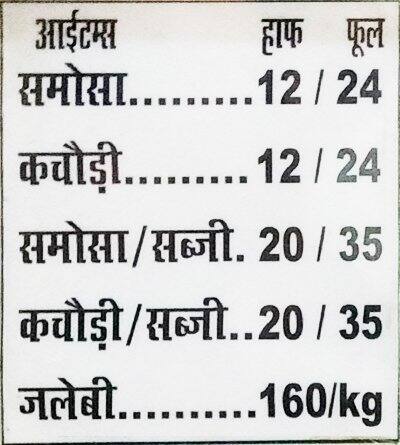 आईटम्स हाफ फूल
समोसा......... 12 / 24
कचौड़ी......... 12 / 24
समोसा/सब्जी. 20 / 35
कचौड़ी/सब्जी..20 / 35
जलेबी..........160/kg